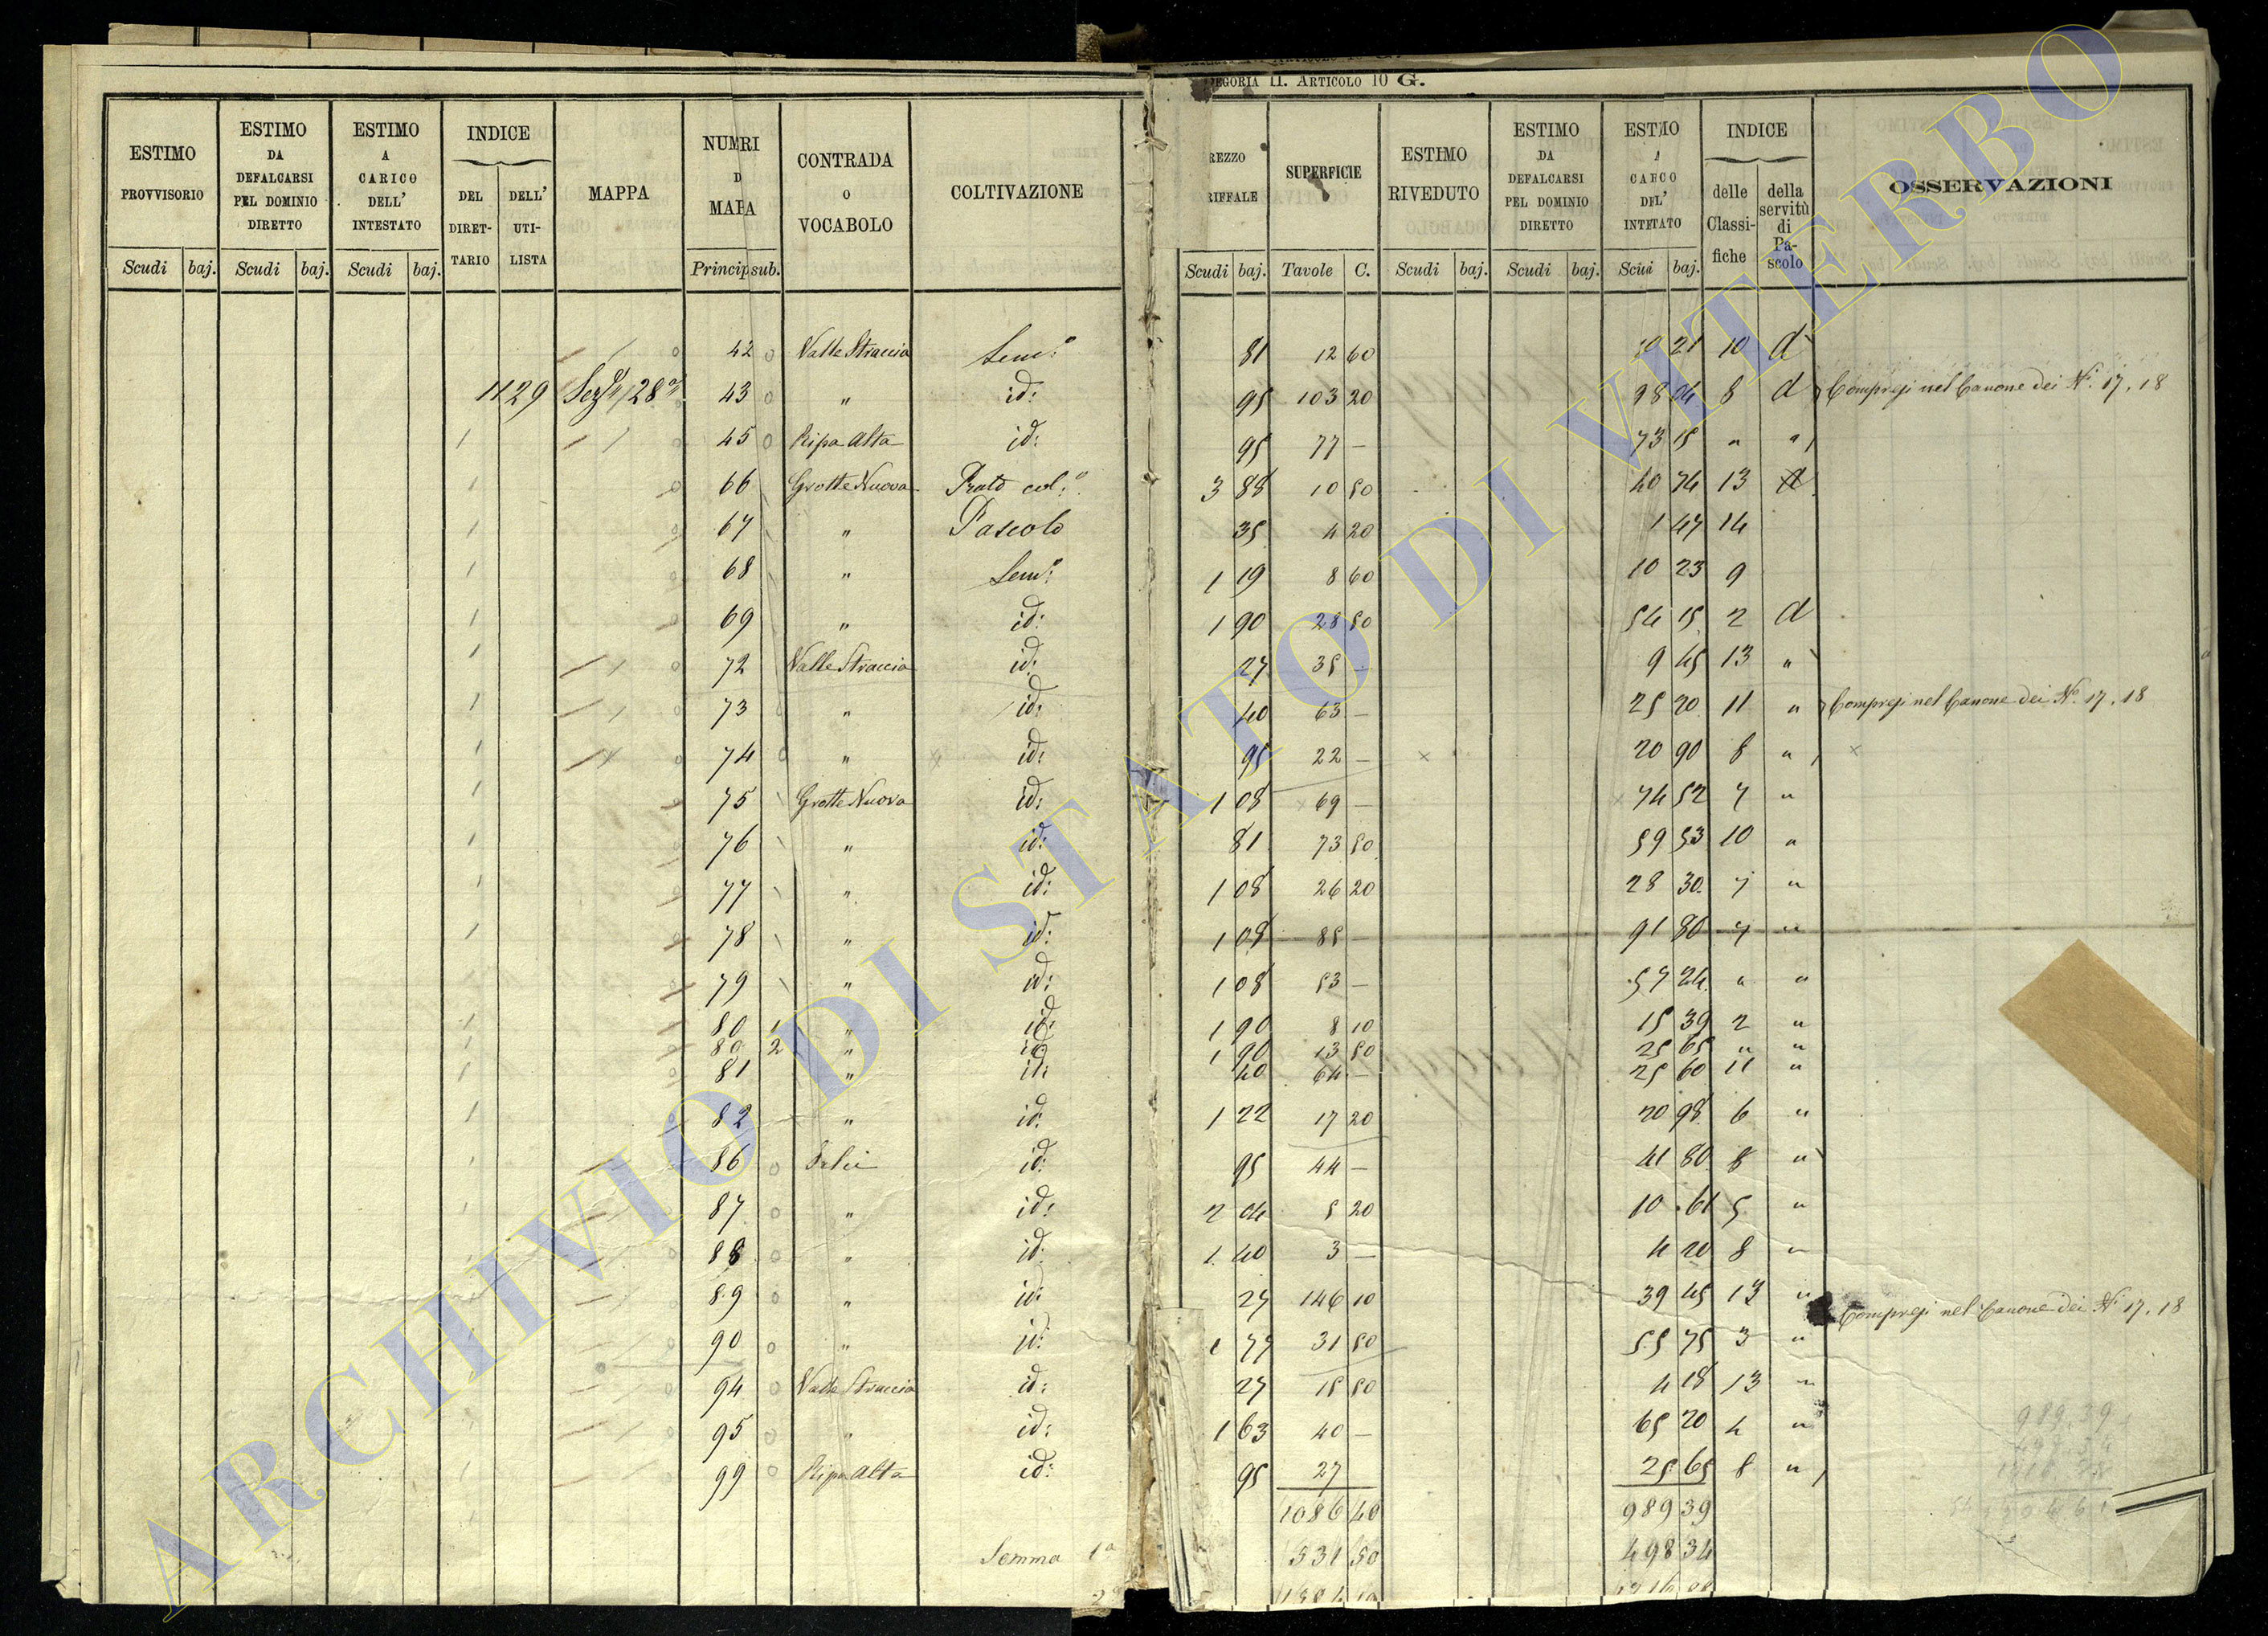 CATEGORIA II. ARTICOLO 10 G.
ESTIMO PROVVISORIO
ESTIMO DA DEFALCARSI PEL DOMINIO DIRETTO
ESTIMO A CARICO DELL' INTESTATO
INDICE
DEL DIRET-TARIO
DELL' UTI-LISTA
MAPPA
NUMRI D MAPA
CONTRADA o VOCABOLO
COLTIVAZIONE
REZZO RIFFALE
SUPERFICIE
ESTIMO RIVEDUTO
ESTIMO DA DEFALCARSI PEL DOMINIO DIRETTO
INDICE
delle Classi-fiche
della servitù di Pa-scolo
OSSERVAZIONI
Scudi baj. Scudi baj. Scudi baj. Princip sub.
Scudi baj. Tavole C. Scudi baj. Scudi baj. baj.
42 Valle Straccia Sem.o 81 12 60 10 21 10 d
1129 43 " id: 95 103 20 98 04 8 d Compresi nel Canone dei N. 17, 18
45 Ripa Alta id: 95 77 — 73 15 " "
66 Grotte Nuova Prato col:o 3 88 10 50 40 74 13 d
67 " Pascolo 35 4 20 1 47 14
68 " Sem:o 1 19 8 60 10 23 9
69 " id: 1 90 28 50 54 15 2 d
72 Valle Straccia id: 27 35 — 9 45 13 "
73 " id: 40 63 — 25 20 11 " Compresi nel Canone dei No. 17, 18
74 " id: 95 22 — 20 90 8 "
75 Grotte Nuova id: 1 08 69 — 74 52 7 "
76 " id: 81 73 50 59 53 10 "
77 " id: 1 08 26 20 28 30 7 "
78 " id: 1 08 85 — 91 80 7 "
79 " id: 1 08 53 — 57 24 " "
80 1 " id: 1 90 8 10 15 39 2 "
80 2 " id: 1 90 13 50 25 65 " "
81 " id: 40 64 — 25 60 11 "
82 " id: 1 22 17 20 20 98 6 "
86 id: 95 44 — 41 80 8 "
87 " id: 2 04 5 20 10 61 5 "
88 " id: 1 40 3 — 4 20 8 "
89 " id: 27 146 10 39 45 13 " Compresi nel Canone dei N. 17, 18
90 " id: 1 77 31 50 55 75 3 "
94 Valle Straccia id: 27 15 50 4 18 13 "
95 " id: 1 63 40 — 65 20 4 "
99 Ripa Alta id: 95 27 25 65 8 "
1086 40 989 39
Somma 1a 531 50 498 34
989.39
ARCHIVIO DI STATO DI VITERBO